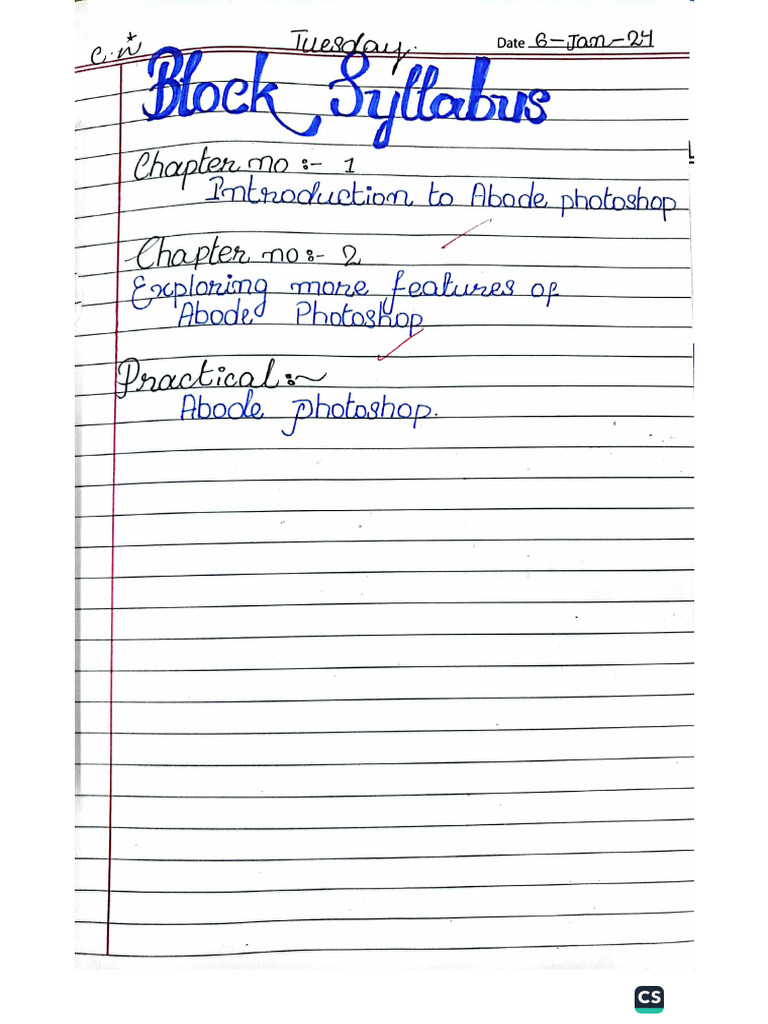 C.W*
Tuesday.
Date 6-Jan-24
Block Syllabus
Chapter no :- 1
Introduction to Abode photoshop
Chapter no:- 2
Exploring more features of
Abode Photoshop
Practical:~
Abode photoshop.
CS